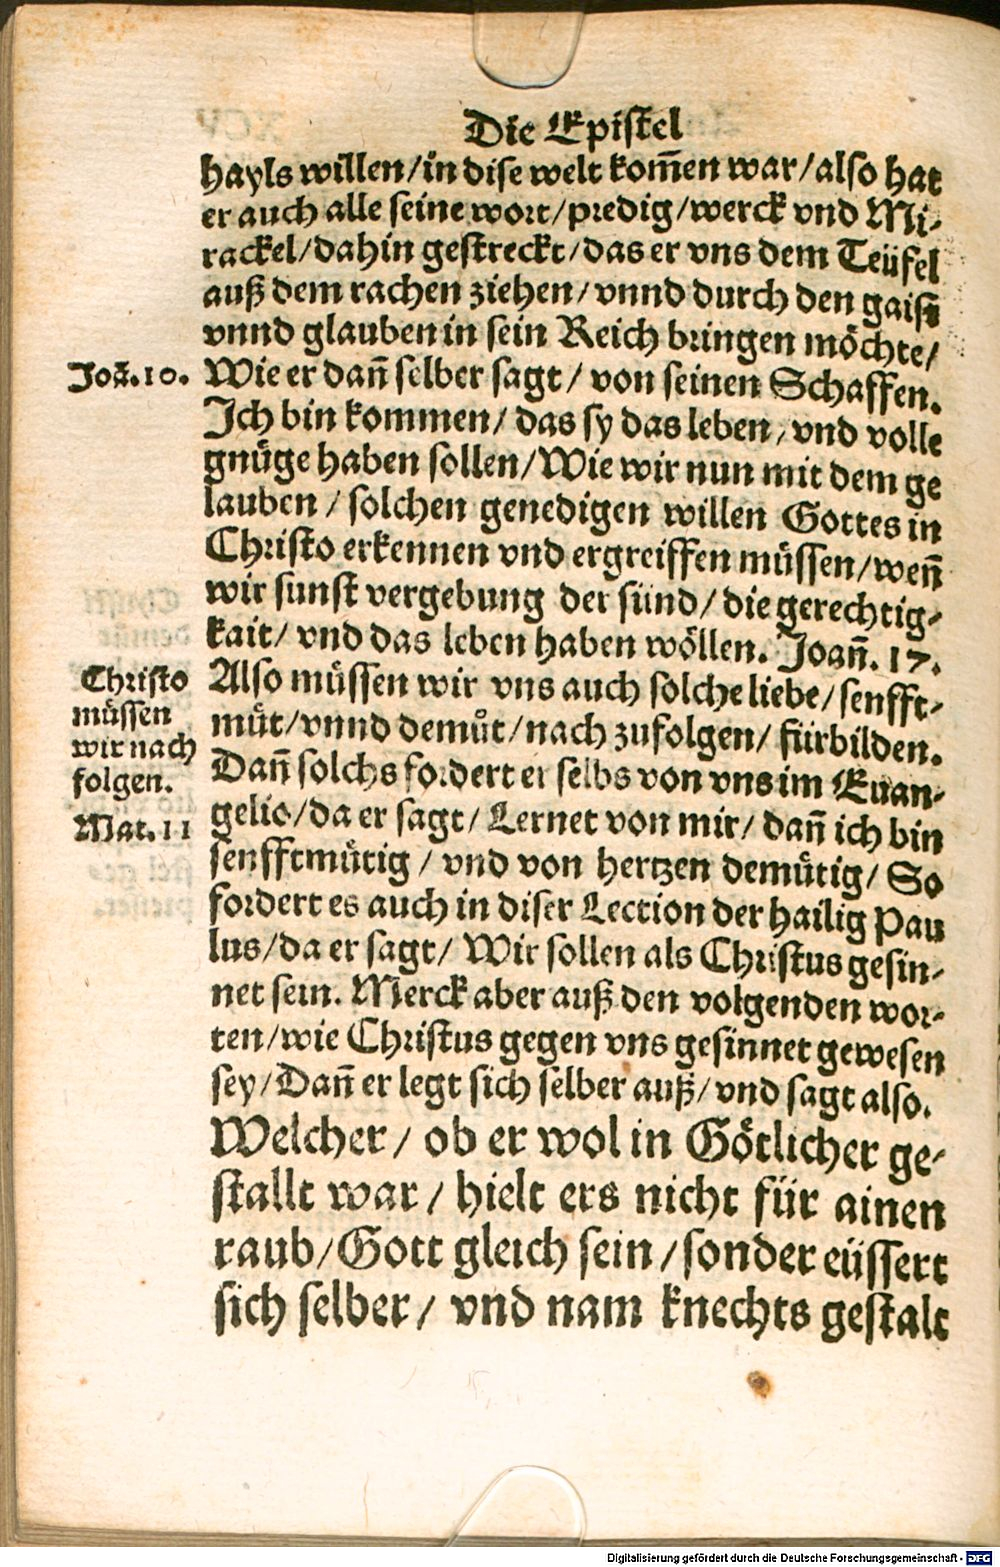 Die Epistel
hayls willen/in dise welt kom̄en war/also hat
er auch alle seine wort/predig/werck vnd Mi-
rackel/dahin gestreckt/das er vns dem Teüfel
auß dem rachen ziehen/vnnd durch den gaist
vnnd glauben in sein Reich bringen möchte/
Joā.10.
Wie er dañ selber sagt/von seinen Schaffen.
Jch bin kommen/das sy das leben/vnd volle
gnůge haben sollen/Wie wir nun mit dem ge
lauben/solchen genedigen willen Gottes in
Christo erkennen vnd ergreiffen müssen/weñ
wir sunst vergebung der sünd/die gerechtig-
kait/vnd das leben haben wöllen. Joañ.17.
Christo
müssen
wir nach
folgen.
Mat.11
Also müssen wir vns auch solche liebe/senfft-
müt/vnnd demůt/nach zufolgen/fürbilden.
Dañ solchs fordert er selbs von vns im Euan-
gelio/da er sagt/Lernet von mir/dañ ich bin
senfftmütig/vnd von hertzen demütig/So
fordert es auch in diser Lection der hailig Pau
lus/da er sagt/Wir sollen als Christus gesin-
net sein. Merck aber auß den volgenden wor-
ten/wie Christus gegen vns gesinnet gewesen
sey/Dañ er legt sich selber auß/vnd sagt also.
Welcher/ob er wol in Götlicher ge-
stallt war/hielt ers nicht für ainen
raub/Gott gleich sein/sonder eüssert
sich selber/vnd nam knechts gestalt
Digitalisierung gefördert durch die Deutsche Forschungsgemeinschaft - DFG